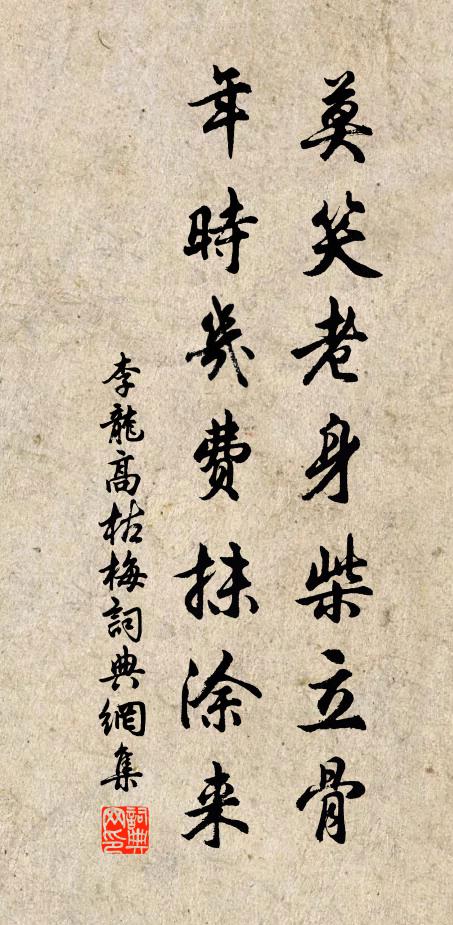 莫笑老身柴立骨
年時幾費抹涂来
李龍高枯梅詞典網集
詞典网印